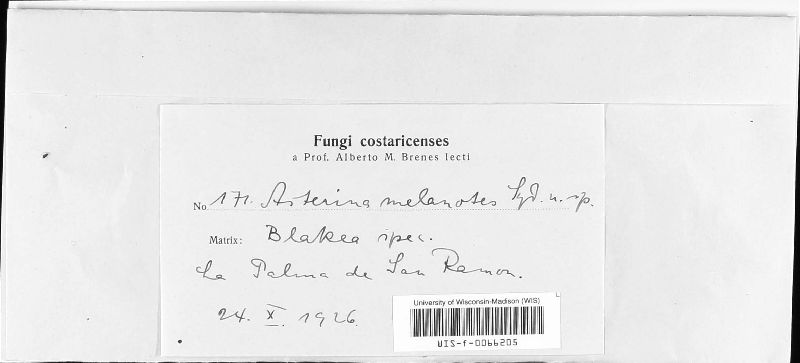 Fungi costaricenses
a Prof. Alberto M. Brenes lecti
No 171. Asterina melanotes Syd. n. sp.
Matrix: Blakea spec.
La Palma de San Ramon.
24. X. 1926.
University of Wisconsin-Madison (WIS)
WIS-f-0066205